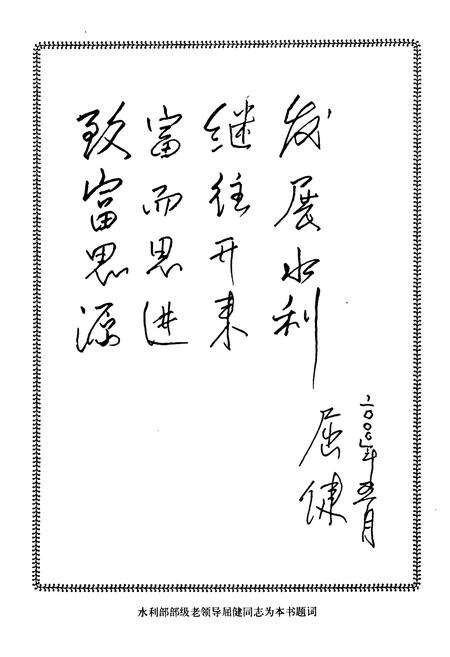 致富思源
富而思进
继往开来
发展水利
屈健
二〇〇〇年五月
水利部部级老领导屈健同志为本书题词